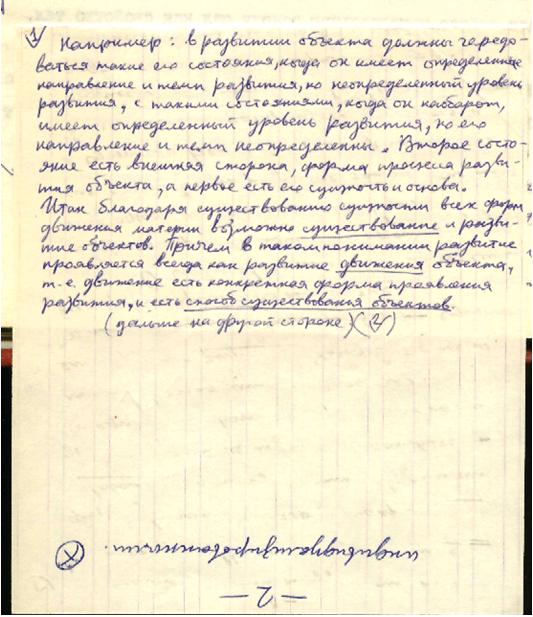 1 Например: в развитии объекта должны чередо-
ваться такие его состояния, когда он имеет определенное
направление и темп развития, но неопределенный уровень
развития, с такими состояниями, когда он наоборот,
имеет определенный уровень развития, но его
направление и темп неопределенны. Второе состо-
яние есть внешняя сторона, форма процесса разви-
тия объекта, а первое есть его сущность и основа.
Итак благодаря существованию сущности всех форм
движения материи возможно существование и разви-
тие объектов. Причем в таком понимании развитие
проявляется всегда как развитие движения объекта,
т-е. движение есть конкретная форма проявления
развития, и есть способ существования объектов.
(дальше на другой стороне) (2)
индивидуализированными. X
— 2 —